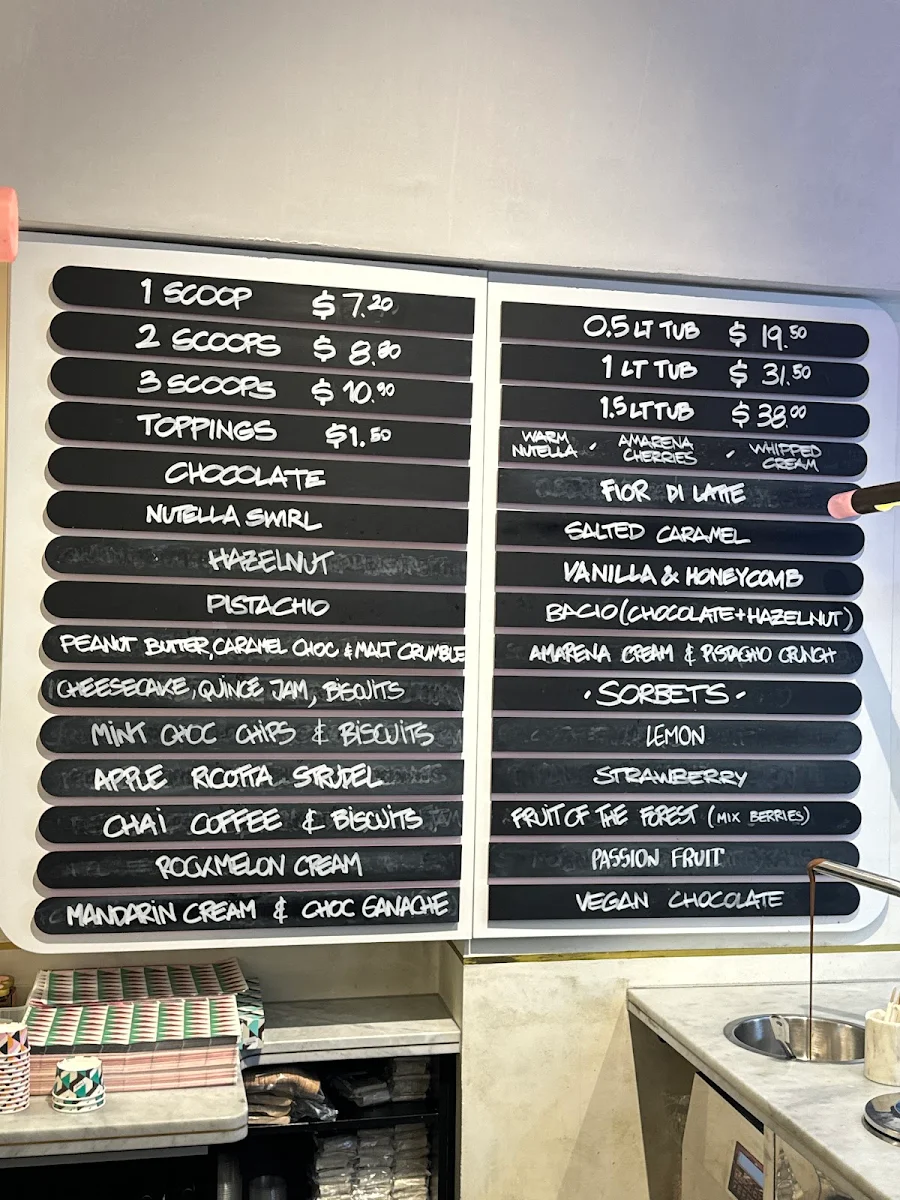 1 SCOOP $ 7.20
2 SCOOPS $ 8.80
3 SCOOPS $ 10.90
TOPPINGS $1.50
CHOCOLATE
NUTELLA SWIRL
HAZELNUT
PISTACHIO
PEANUT BUTTER, CARAMEL CHOC & MALT CRUMBLE
CHEESECAKE, QUINCE JAM, BISCUITS
MINT CHOC CHIPS & BISCUITS
APPLE RICOTTA STRUDEL
CHAI COFFEE & BISCUITS
ROCKMELON CREAM
MANDARIN CREAM & CHOC GANACHE
0.5 LT TUB $ 19.50
1 LT TUB $ 31.50
1.5 LT TUB $ 38.00
WARM NUTELLA · AMARENA CHERRIES · WHIPPED CREAM
FIOR DI LATTE
SALTED CARAMEL
VANILLA & HONEYCOMB
BACIO (CHOCOLATE+HAZELNUT)
AMARENA CREAM & PISTACHIO CRUNCH
· SORBETS ·
LEMON
STRAWBERRY
FRUIT OF THE FOREST (MIX BERRIES)
PASSION FRUIT
VEGAN CHOCOLATE